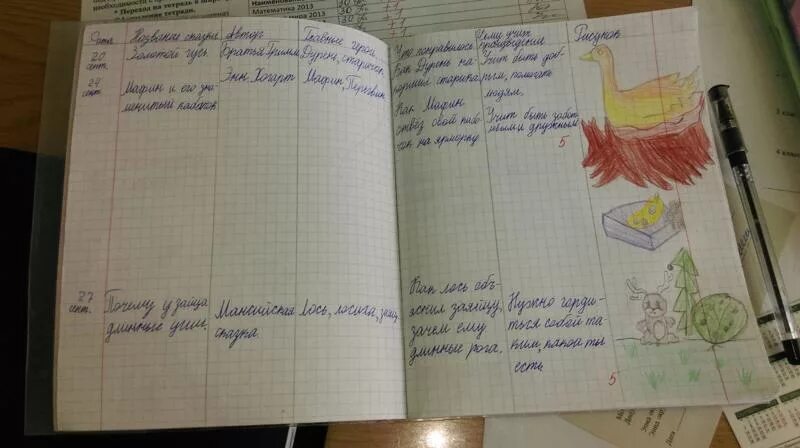 необходимости р
• Перевал на тетрадь в широ
Наименование
Математика 2013
мира 2013
30
Дата Название сказки Автор Главные герои Что понравилось Чему учит произведение Рисунок
20 сент. Золотой гусь. Братья Гримм. Дурень, старичок.
Как Дурень накормил старика.
Учит быть добрым, помогать людям.
24 сент Мафин и его знаменитый кабачок Энн Хогарт Мафин, Перегрин
Как Мафин отвёз свой кабачок на ярмарку
Учит быть заботливым и дружным
5
27 сент. Почему у зайца длинные уши. Мансийская сказка. Лось, лосиха, заяц
Как лось объяснил зайцу, зачем ему длинные рога.
Нужно гордиться собой таким, какой ты есть
5